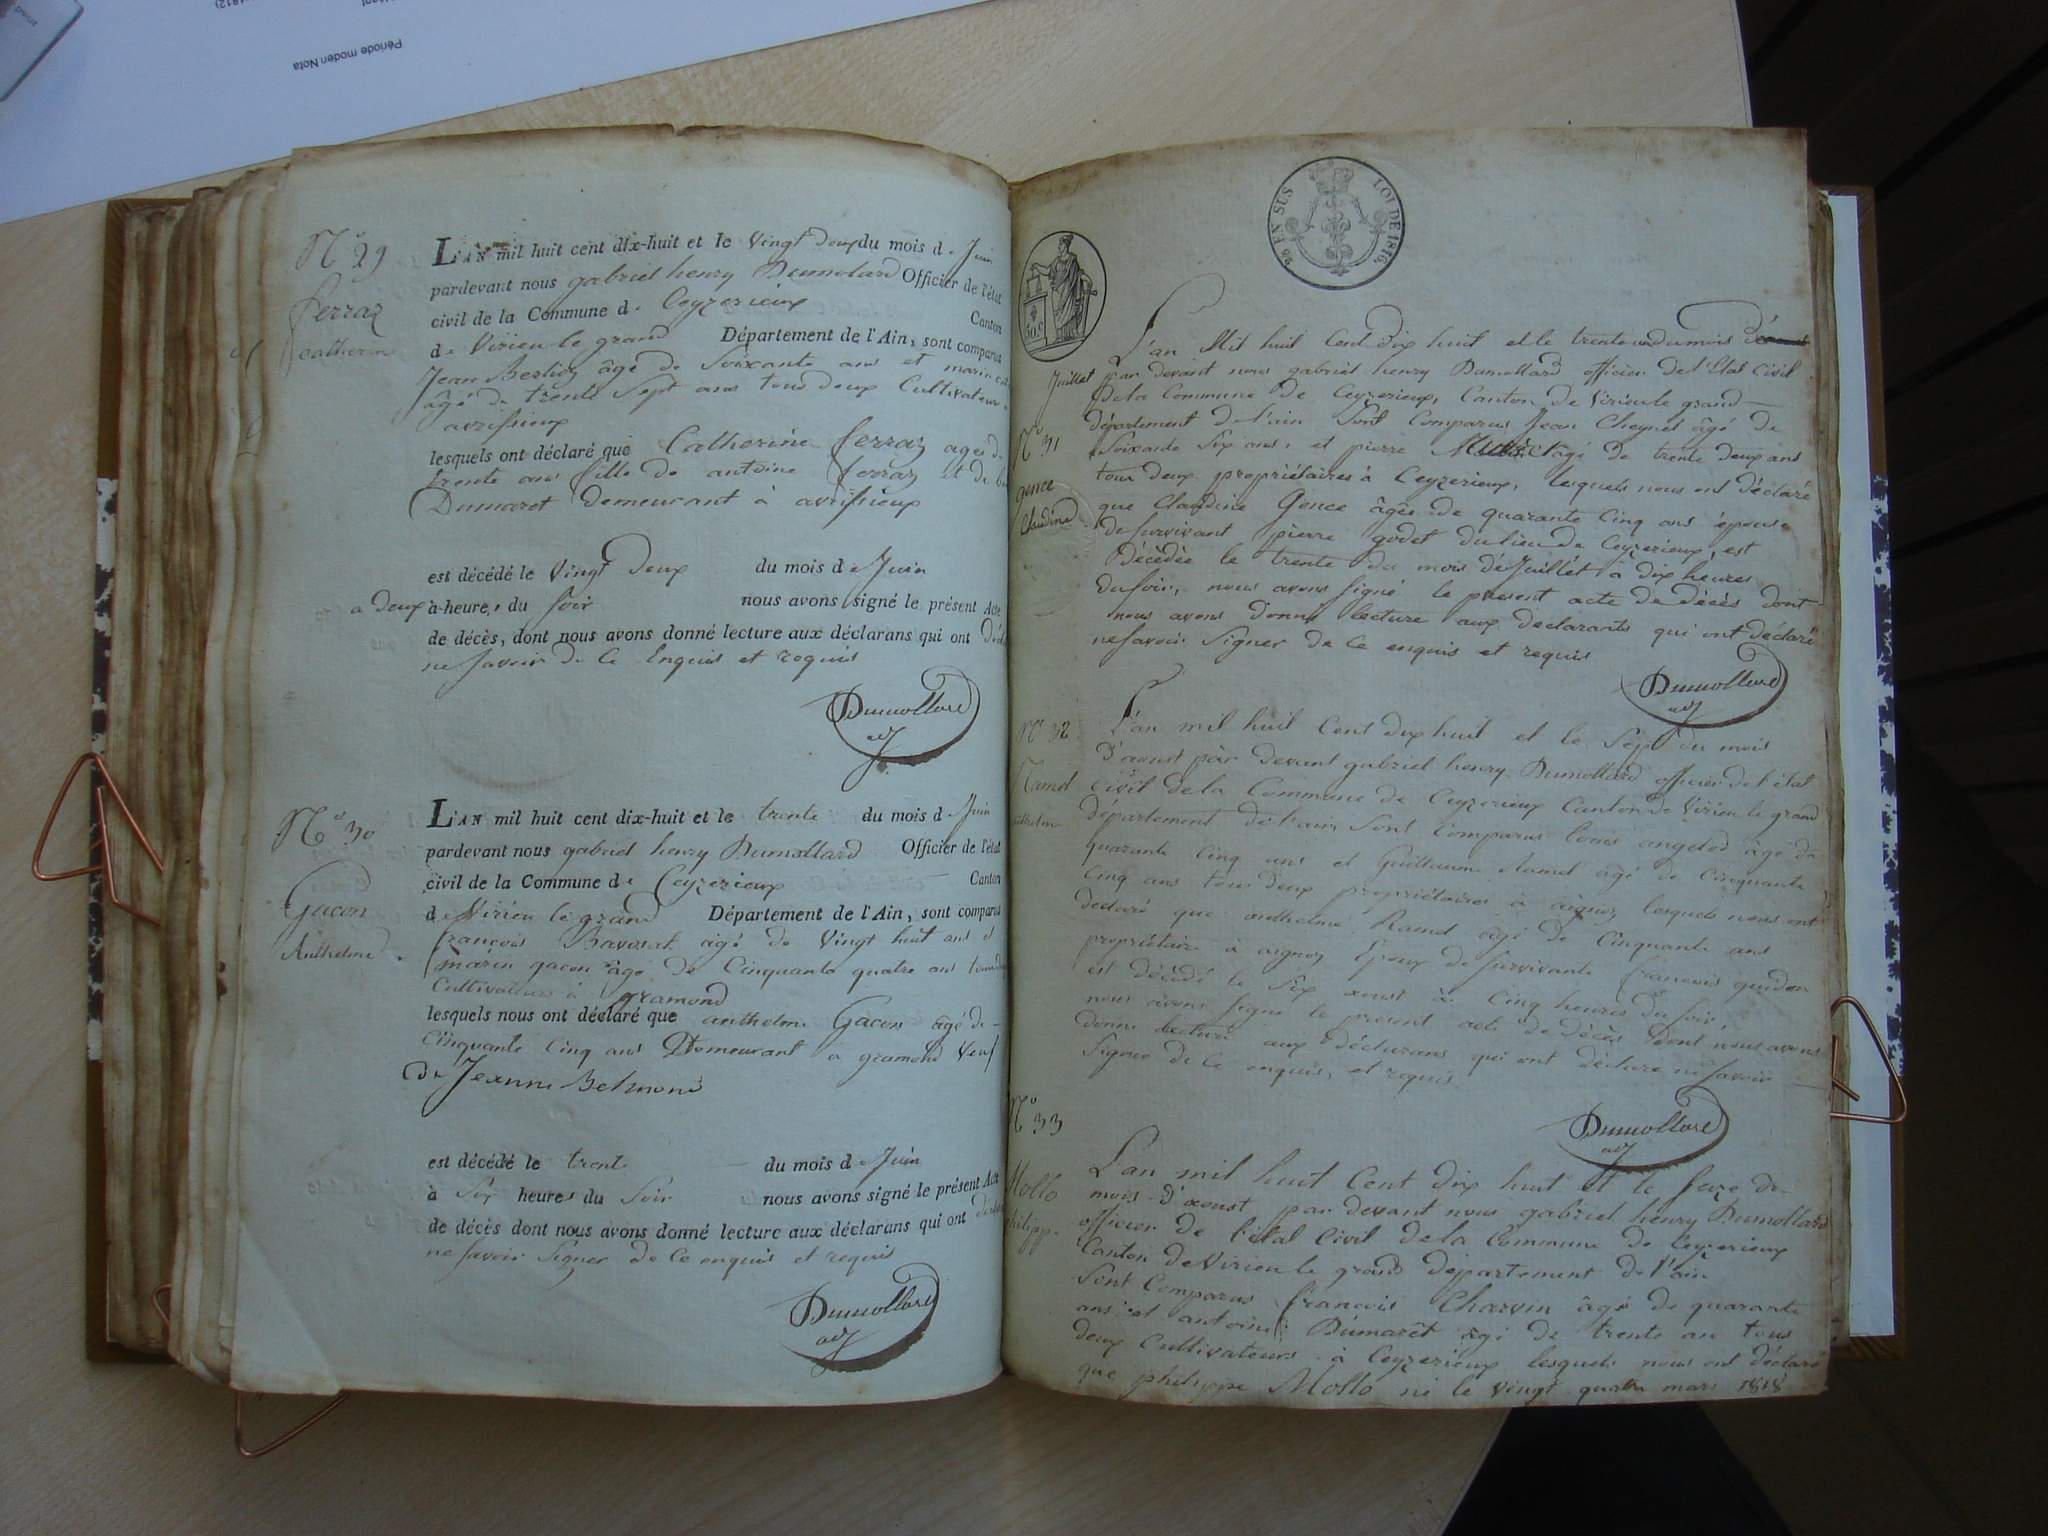 Période moderr Nota
N° 29
ferraz
Catherine
L'AN mil huit cent dix-huit et le vingt deux du mois de Juin
pardevant nous gabriel henry Dumolard Officier de l'état
civil de la Commune de Ceyzerieux Canton
de Virieu le grand Département de l'Ain, sont comparus
Jean Berlioz âgé de Soixante ans et marin
âgé de trente Sept ans tous deux Cultivateurs a
avrissieux
lesquels ont déclaré que Catherine ferraz agée de
trente ans fille de antoine ferraz et de
Dumaret demeurant à avrissieux
est décédé le vingt Deux du mois de Juin
a deux à heures du soir nous avons signé le présent Acte
de décès, dont nous avons donné lecture aux déclarans qui ont
ne savoir de Ce Enquis et requis
Dumollard
adj
N° 30
Gacon
Anthelme
L'AN mil huit cent dix-huit et le trente du mois de Juin
pardevant nous gabriel henry Dumollard Officier de l'état
civil de la Commune de Ceyzerieux Canton
de Virieu le grand Département de l'Ain, sont comparus
françois Bavosat âgé de Vingt huit ans et
marin gacon âgé de Cinquante quatre ans
Cultivateurs à gramond
lesquels nous ont déclaré que anthelme Gacon âgé de
Cinquante Cinq ans Demeurant à gramond Veuf
de Jeanne Belmond
est décédé le trente du mois de Juin
à Six heures du Soir nous avons signé le présent Acte
de décès dont nous avons donné lecture aux déclarans qui ont
ne savoir Signer de Ce enquis et requis
Dumollard
adj
EN SUS
LOI DE 1816.
50.c
L'an Mil huit Cent Dix huit et le trente un du mois De
Juillet par devant nous gabriel henry Dumollard officier de l'Etat Civil
de la Commune De Ceyzerieux, Canton de Virieu le grand
département de l'ain Sont Comparus Jean Cheynel âgé de
N° 31
Soixante Six ans, et pierre âgé de trente Deux ans
tous deux propriétaires à Ceyzerieux, lesquels nous ont Déclaré
gence
Claudine
que Claudine Gence âgée de quarante Cinq ans épouse
de survivant pierre godet du lieu de Ceyzerieux, est
Décédée le trente du mois de Juillet à dix heures
du soir, nous avons signé le present acte de décés dont
nous avons Donné lecture aux declarants qui ont déclaré
ne savoir Signer de Ce enquis et requis
Dumollard
adj
N° 32
Ramel
L'an mil huit Cent dix huit et le Sept du mois
D'aoust par devant gabriel henry Dumollard officier de l'état
Civil de la Commune de Ceyzerieux Canton de Virieu le grand
département de l'ain Sont Comparus louis angelod âgé de
quarante Cinq ans et Guillaume Ramel âgé de Cinquante
Cinq ans tous Deux propriétaires à aignoz lesquels nous ont
déclaré que anthelme Ramel âgé de Cinquante ans
propriétaire à aignoz Epoux de survivante francoise guidon
est décédé le Six aoust à Cinq heures du soir,
nous avons signé le present acte de décès Dont nous avons
donné lecture aux Déclarans qui ont déclaré ne savoir
Signer de Ce enquis, et requis
Dumollard
adj
N° 33
Mollo
philippe
L'an mil huit Cent dix huit et le seize du
mois d'aoust par devant nous gabriel henry Dumollard
officier de l'état Civil de la Commune de Ceyzerieux
Canton de Virieu le grand département de l'ain
Sont Comparus francois Charvin âgé de quarante
ans et antoine Dumarêt âgé de trente an tous
deux Cultivateurs à Ceyzerieux lesquels nous ont déclaré
que philippe Mollo né le vingt quatre mars 1818